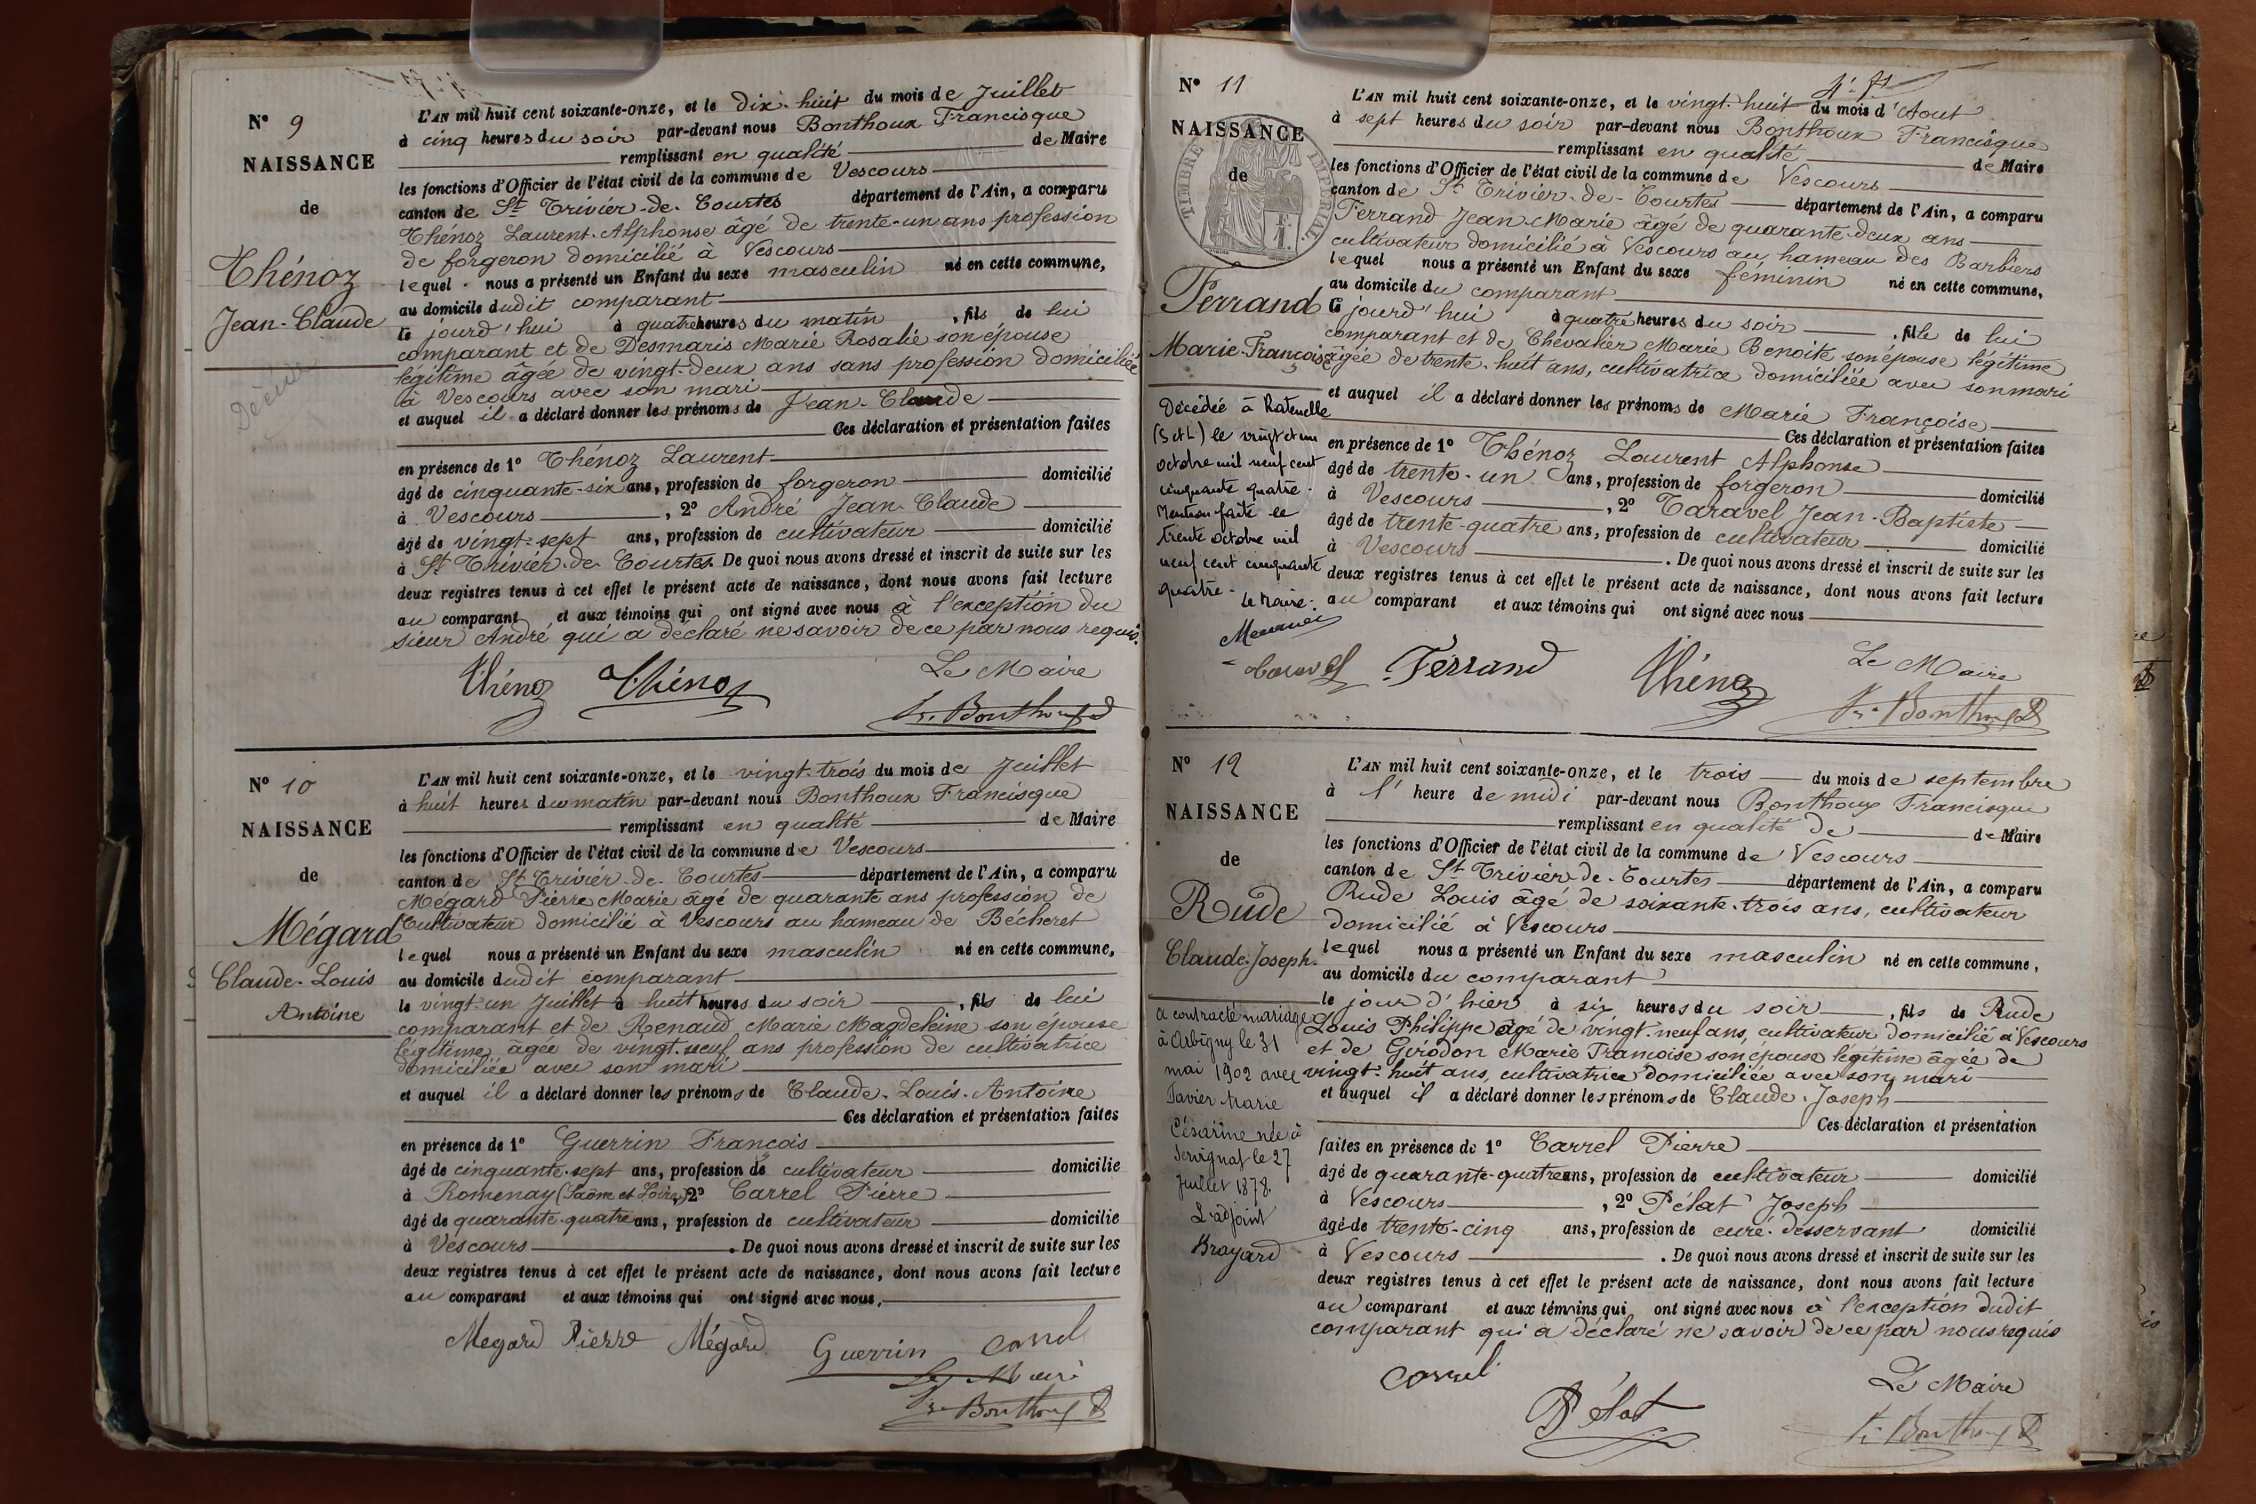 N° 9
NAISSANCE
de
Thénoz
Jean-Claude
Décédé
L'AN mil huit cent soixante-onze, et le dix-huit du mois de Juillet
à cinq heures du soir par-devant nous Bonthoux Francisque
remplissant en qualité de Maire
les fonctions d'Officier de l'état civil de la commune de Vescours
canton de St Trivier-de-Courtes département de l'Ain, a comparu
Thénoz Laurent-Alphonse âgé de trente-un ans profession
de forgeron domicilié à Vescours
lequel nous a présenté un Enfant du sexe masculin né en cette commune,
au domicile dudit comparant
ce jourd'hui à quatre heures du matin, fils de lui
comparant et de Desmaris Marie Rosalie son épouse
légitime âgée de vingt-deux ans sans profession domiciliée
à Vescours avec son mari
et auquel il a déclaré donner les prénoms de Jean-Claude
Ces déclaration et présentation faites
en présence de 1° Thénoz Laurent
âgé de cinquante-six ans, profession de forgeron domicilié
à Vescours, 2° André Jean-Claude
âgé de vingt-sept ans, profession de cultivateur domicilié
à St Trivier-de-Courtes. De quoi nous avons dressé et inscrit de suite sur les
deux registres tenus à cet effet le présent acte de naissance, dont nous avons fait lecture
au comparant et aux témoins qui ont signé avec nous à l'exception du
sieur André qui a déclaré ne savoir de ce par nous requis.
Thénoz Thénoz Le Maire
Fr. Bonthoux
N° 10
NAISSANCE
de
Mégard
Claude-Louis
Antoine
L'AN mil huit cent soixante-onze, et le vingt-trois du mois de Juillet
à huit heures du matin par-devant nous Bonthoux Francisque
remplissant en qualité de Maire
les fonctions d'Officier de l'état civil de la commune de Vescours
canton de St Trivier-de-Courtes département de l'Ain, a comparu
Mégard Pierre Marie âgé de quarante ans profession de
Cultivateur domicilié à Vescours au hameau de Bécheret
lequel nous a présenté un Enfant du sexe masculin né en cette commune,
au domicile dudit comparant
le vingt-un Juillet à huit heures du soir, fils de lui
comparant et de Renaud Marie Magdeleine son épouse
légitime âgée de vingt-neuf ans profession de cultivatrice
domiciliée avec son mari
et auquel il a déclaré donner les prénoms de Claude-Louis-Antoine
Ces déclaration et présentation faites
en présence de 1° Guerrin François
âgé de cinquante-sept ans, profession de cultivateur domicilié
à Romenay (Saône et Loire), 2° Carrel Pierre
âgé de quarante-quatre ans, profession de cultivateur domicilié
à Vescours. De quoi nous avons dressé et inscrit de suite sur les
deux registres tenus à cet effet le présent acte de naissance, dont nous avons fait lecture
au comparant et aux témoins qui ont signé avec nous,
Mégard Pierre Mégard Guerrin Carrel
Le Maire
Fr. Bonthoux
N° 11
NAISSANCE
de
TIMBRE IMPÉRIAL
Ferrand
Marie-Françoise
Décédée à Ratenelle
(S et L) le vingt et un
octobre mil neuf cent
cinquante quatre.
Mention faite le
trente octobre mil
neuf cent cinquante
quatre.
Le Maire.
L'AN mil huit cent soixante-onze, et le vingt-huit du mois d'Aout
à sept heures du soir par-devant nous Bonthoux Francisque
remplissant en qualité de Maire
les fonctions d'Officier de l'état civil de la commune de Vescours
canton de St Trivier-de-Courtes département de l'Ain, a comparu
Ferrand Jean-Marie âgé de quarante-deux ans
cultivateur domicilié à Vescours au hameau des Barbiers
lequel nous a présenté un Enfant du sexe féminin né en cette commune,
au domicile du comparant
ce jourd'hui à quatre heures du soir, fille de lui
comparant et de Chevalier Marie Benoite son épouse légitime
âgée de trente-huit ans, cultivatrice domiciliée avec son mari
et auquel il a déclaré donner les prénoms de Marie Françoise
Ces déclaration et présentation faites
en présence de 1° Thénoz Laurent Alphonse
âgé de trente-un ans, profession de forgeron domicilié
à Vescours, 2° Taravel Jean-Baptiste
âgé de trente-quatre ans, profession de cultivateur domicilié
à Vescours. De quoi nous avons dressé et inscrit de suite sur les
deux registres tenus à cet effet le présent acte de naissance, dont nous avons fait lecture
au comparant et aux témoins qui ont signé avec nous
Taravel Ferrand Thénoz Le Maire
Fr. Bonthoux
N° 12
NAISSANCE
de
Rude
Claude-Joseph.
a contracté mariage
à Arbigny le 31
mai 1902 avec
Pavier Marie
Césarine née à
Servignat le 27
Juillet 1878.
L'adjoint
Brayard
L'AN mil huit cent soixante-onze, et le trois du mois de septembre
à l'heure de midi par-devant nous Bonthoux Francisque
remplissant en qualité de de Maire
les fonctions d'Officier de l'état civil de la commune de Vescours
canton de St Trivier-de-Courtes département de l'Ain, a comparu
Rude Louis âgé de soixante-trois ans, cultivateur
domicilié à Vescours
lequel nous a présenté un Enfant du sexe masculin né en cette commune,
au domicile du comparant
le jour d'hier à six heures du soir, fils de Rude
Louis Philippe âgé de vingt-neuf ans, cultivateur domicilié à Vescours
et de Girodon Marie Françoise son épouse légitime âgée de
vingt-huit ans, cultivatrice domiciliée avec son mari
et auquel il a déclaré donner les prénoms de Claude-Joseph
Ces déclaration et présentation
faites en présence de 1° Carrel Pierre
âgé de quarante-quatre ans, profession de cultivateur domicilié
à Vescours, 2° Pélat Joseph
âgé de trente-cinq ans, profession de curé-desservant domicilié
à Vescours. De quoi nous avons dressé et inscrit de suite sur les
deux registres tenus à cet effet le présent acte de naissance, dont nous avons fait lecture
au comparant et aux témoins qui ont signé avec nous à l'exception dudit
comparant qui a déclaré ne savoir de ce par nous requis
Carrel Pélat Le Maire
Fr. Bonthoux